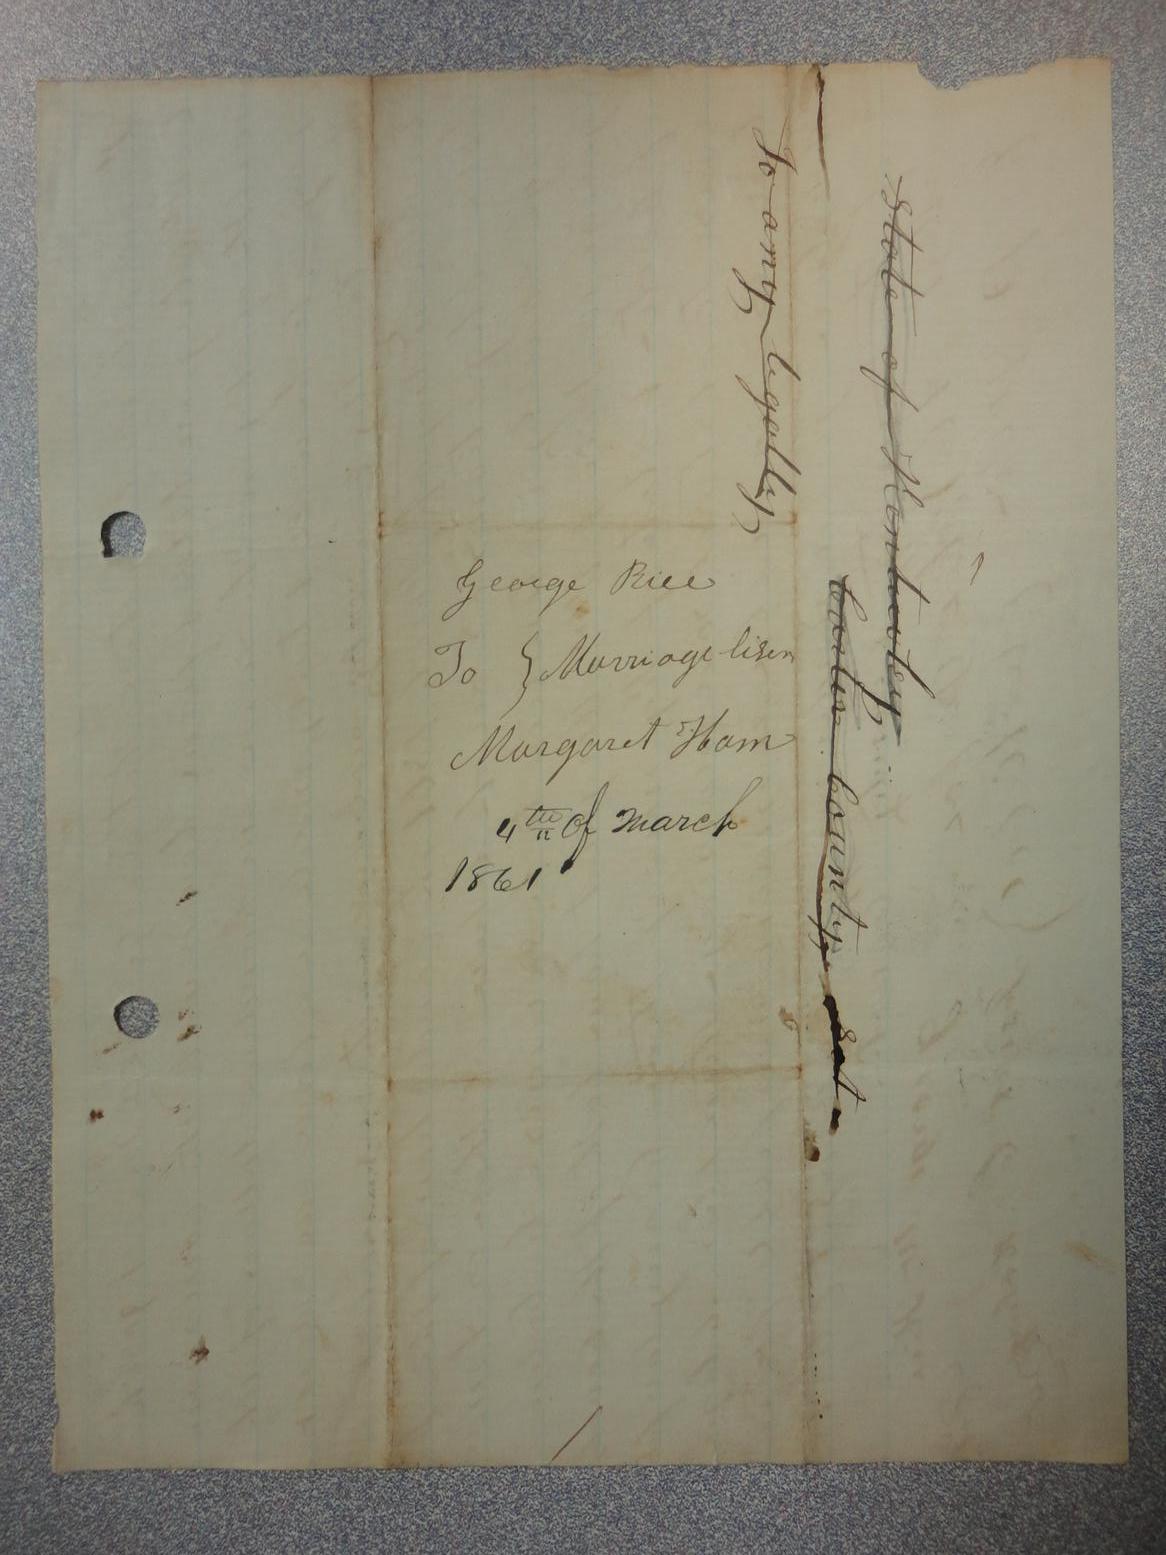 State of Kentuckey
Carter County, Sct.
To any legally
George Rice
To } Marriage lisen
Margaret Ham
4th of March
1861